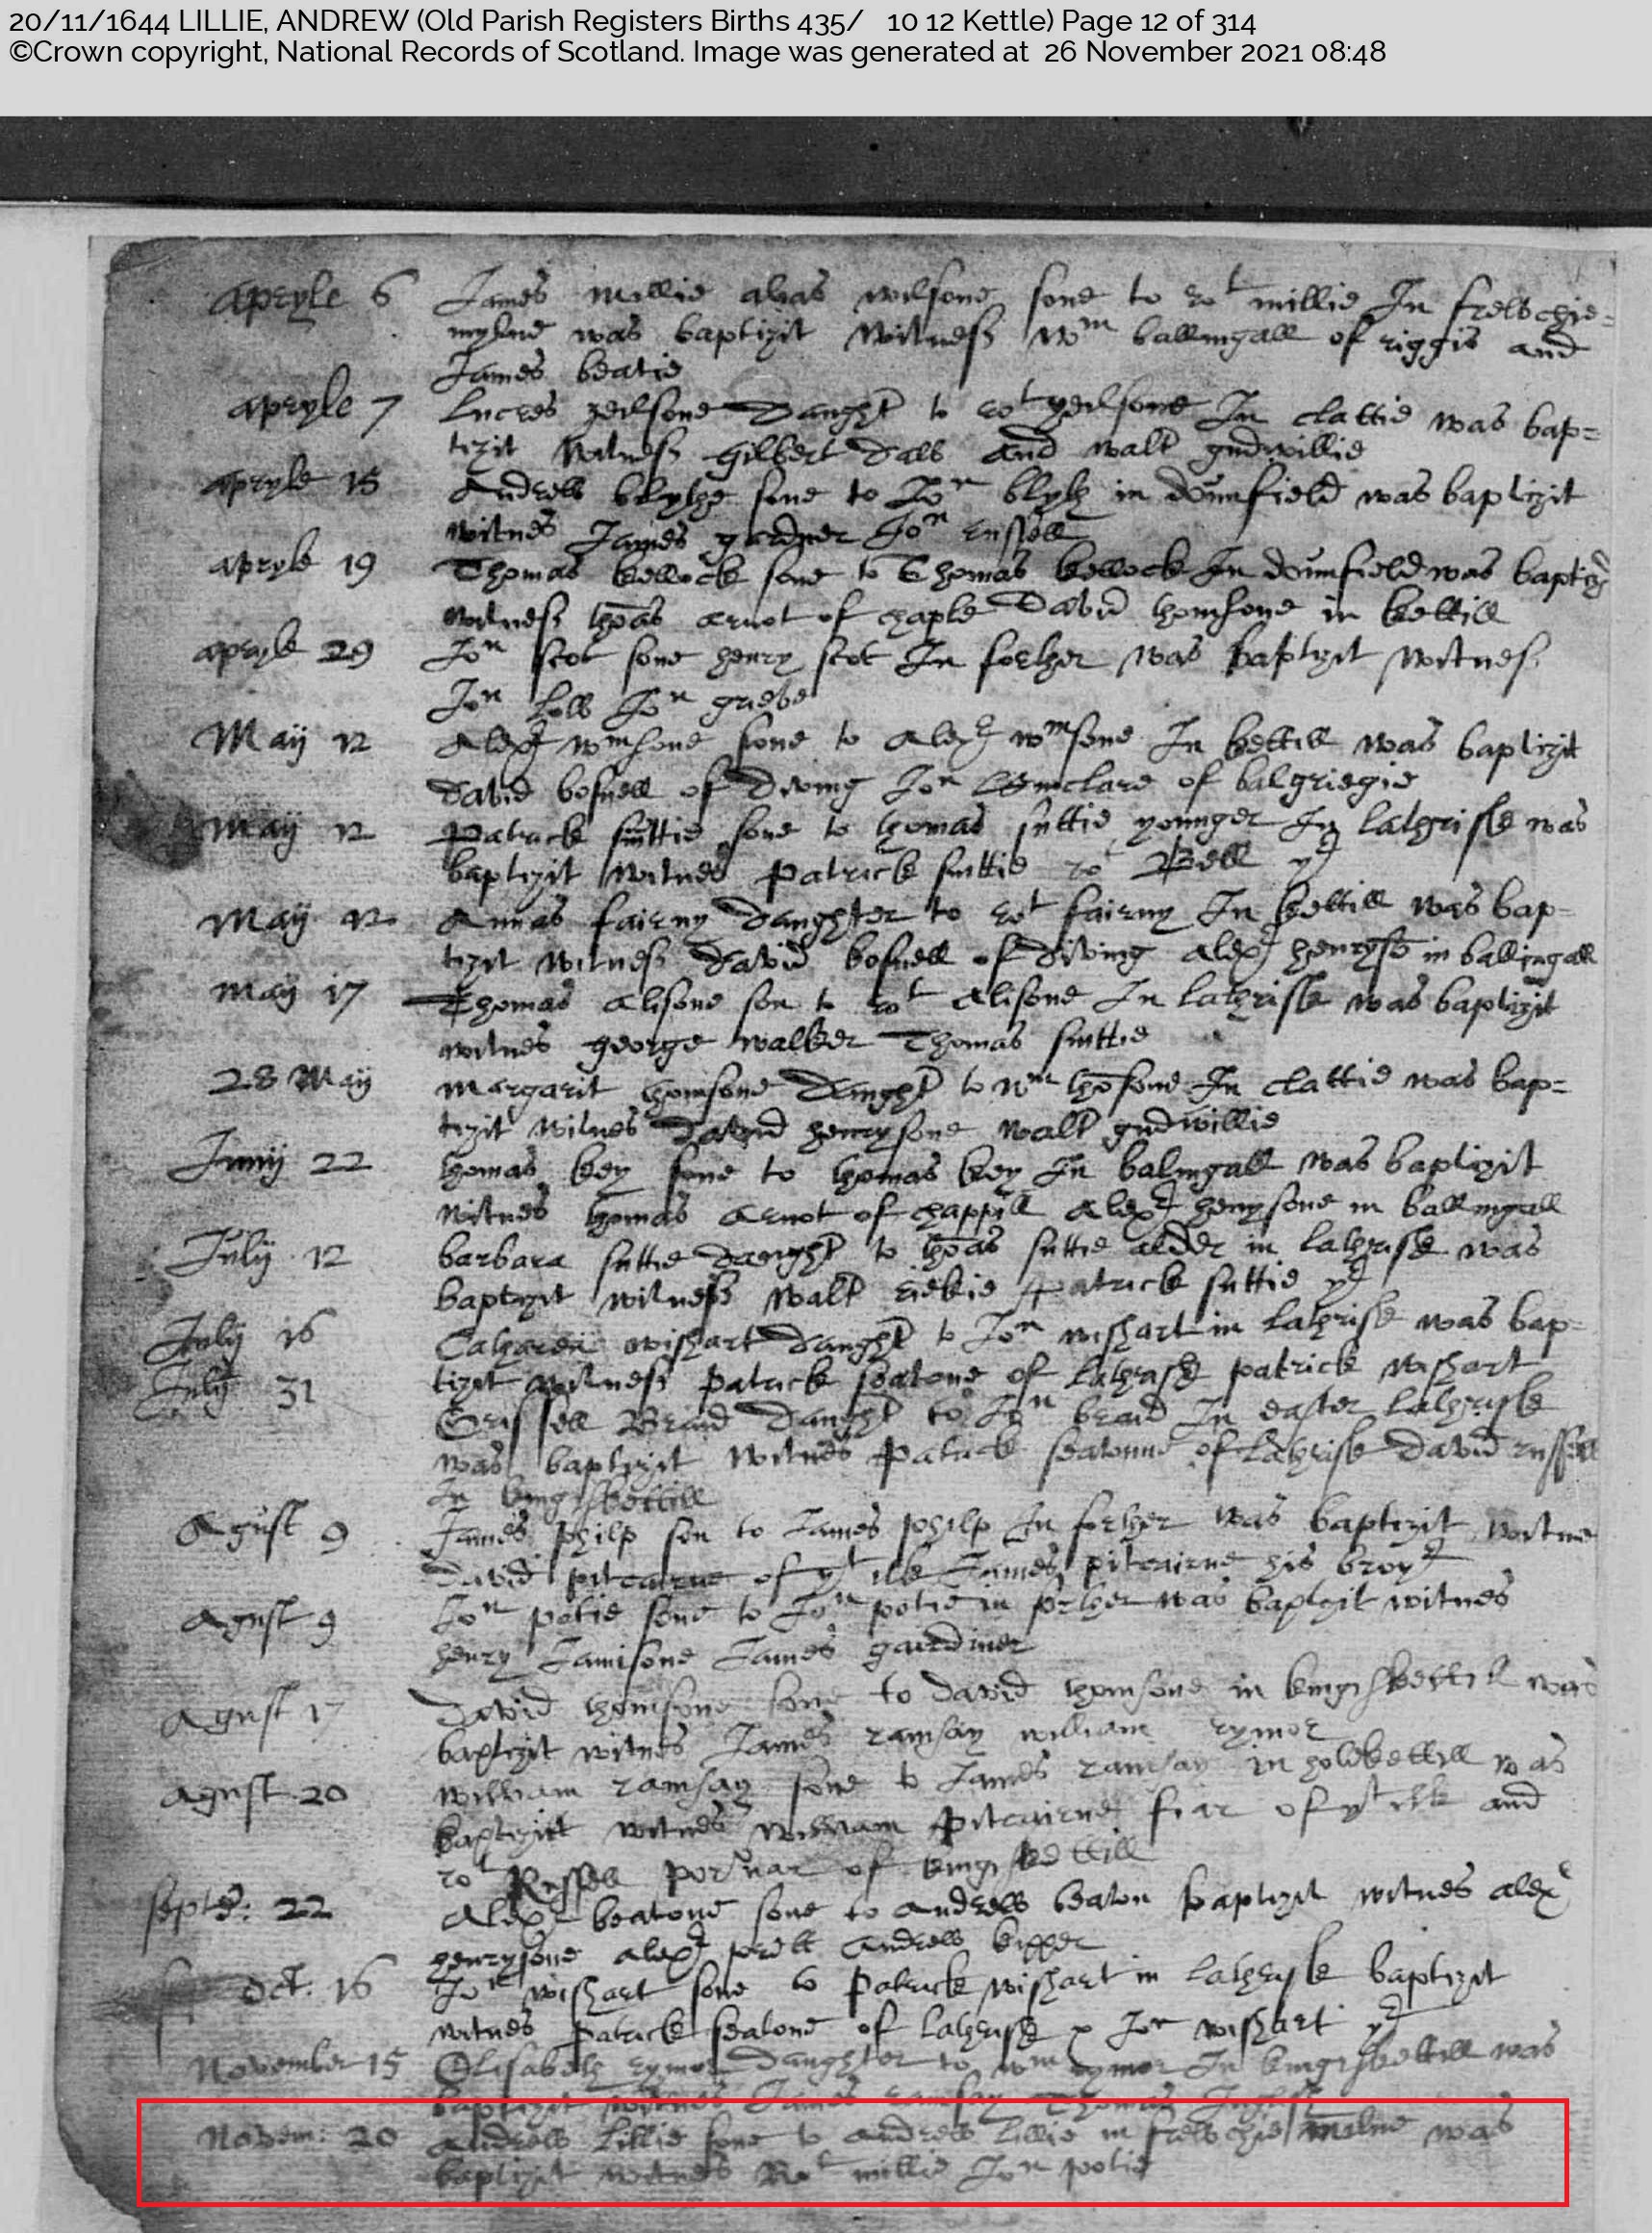 20/11/1644 LILLIE, ANDREW (Old Parish Registers Births 435/ 10 12 Kettle) Page 12 of 314
©Crown copyright, National Records of Scotland. Image was generated at 26 November 2021 08:48
apryle 6 James millie alias wilsone sone to Rot millie In frewchie=
mylne was baptizit Witness Wm ballingall of riggis and
James beatie
apryle 7 Lucres yeilsone Daught to rot yeilsone In clattie was bap=
tizit Witness Gilbert Dall and walt gudwillie
apryle 15 Andrew blythe sone to Jon blyth in dounfield was baptizit
witnes James gardner Jon russell
apryle 19 Thomas kellock sone to Thomas kellock In dounfield was baptiz
witness thoas arnot of chaple David thomsone in kettill
apryle 29 Jon scot sone henry scot In forther was baptizit witnes
Jon Jon grieve
May 12 Alexr wmsone sone to Alexr wmsone In kettill was baptizit
David bosuell of Jon of balgriegie
May 12 Patrick suttie sone to thomas suttie younger In lathrisk was
baptizit witnes Patrick suttie ro Bell yr
May 12 Annas fairny Daughter to rot fairny In kettill was bap=
tizit witness David bosuell of Alexr henryso in ballingall
May 17 Thomas Alisone son to rot Alisone In lathrisk was baptizit
witnes george walker Thomas suttie
28 May margarit thomsone Daught to wm thosone In clattie was bap=
tizit witnes David henrysone walt gudwillie
Junij 22 thomas key sone to thomas key In balingall was baptizit
witnes thomas arnot of chappill Alexr henrysone in ballingall
July 12 barbara suttie Daught to thoas suttie alder in lathrisk was
baptizit witness walt Patrick suttie yr
July 16 Catharen wishart Daught to Jon wishart in lathrisk was bap=
tizit witness Patrick seatone of lathrisk patrick wishart
July 31 Grissell Braid Daught to Jon braid In easter lathrisk
was baptizit witnes Patrick seatoune of lathrisk David russell
In kingiskettill
Agust 9 James philp son to James philp In forther was baptizit witnes
David pitcairne of yt ilk James pitcairne his broyr
Agust 9 Jon potie sone to Jon potie in forther was baptizit witnes
henry Jamisone James gairdiner
Agust 17 David thomsone sone to David thomsone in kingiskettill was
baptizit witnes James ramsay william rymor
Agust 20 William ramsay sone to James ramsay in holkettill was
baptizit witnes William Pitcairne fiar of yt ilk and
rot Russell of kingiskettill
septer: 22 Alexr beatone sone to Andrew beaton baptizit witnes alexr
henrysone alexr Andrew
Oct. 16 Jon wishart sone to Patrick wishart in lathrisk baptizit
witnes Patrick seatone of lathrisk Jon wishart yr
November 15 Elisabeth rymor Daughter to wm rymor In kingiskettill was
baptizit witnes James ramsay Thomas
Novem: 20 Andrew Lillie sone to Andrew Lillie in frewchie milne was
baptizit witnes Rot millie Jon potie